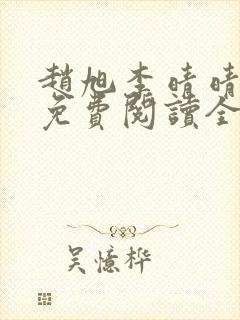 趙旭李晴晴
免費閱讀全
吴憶桦